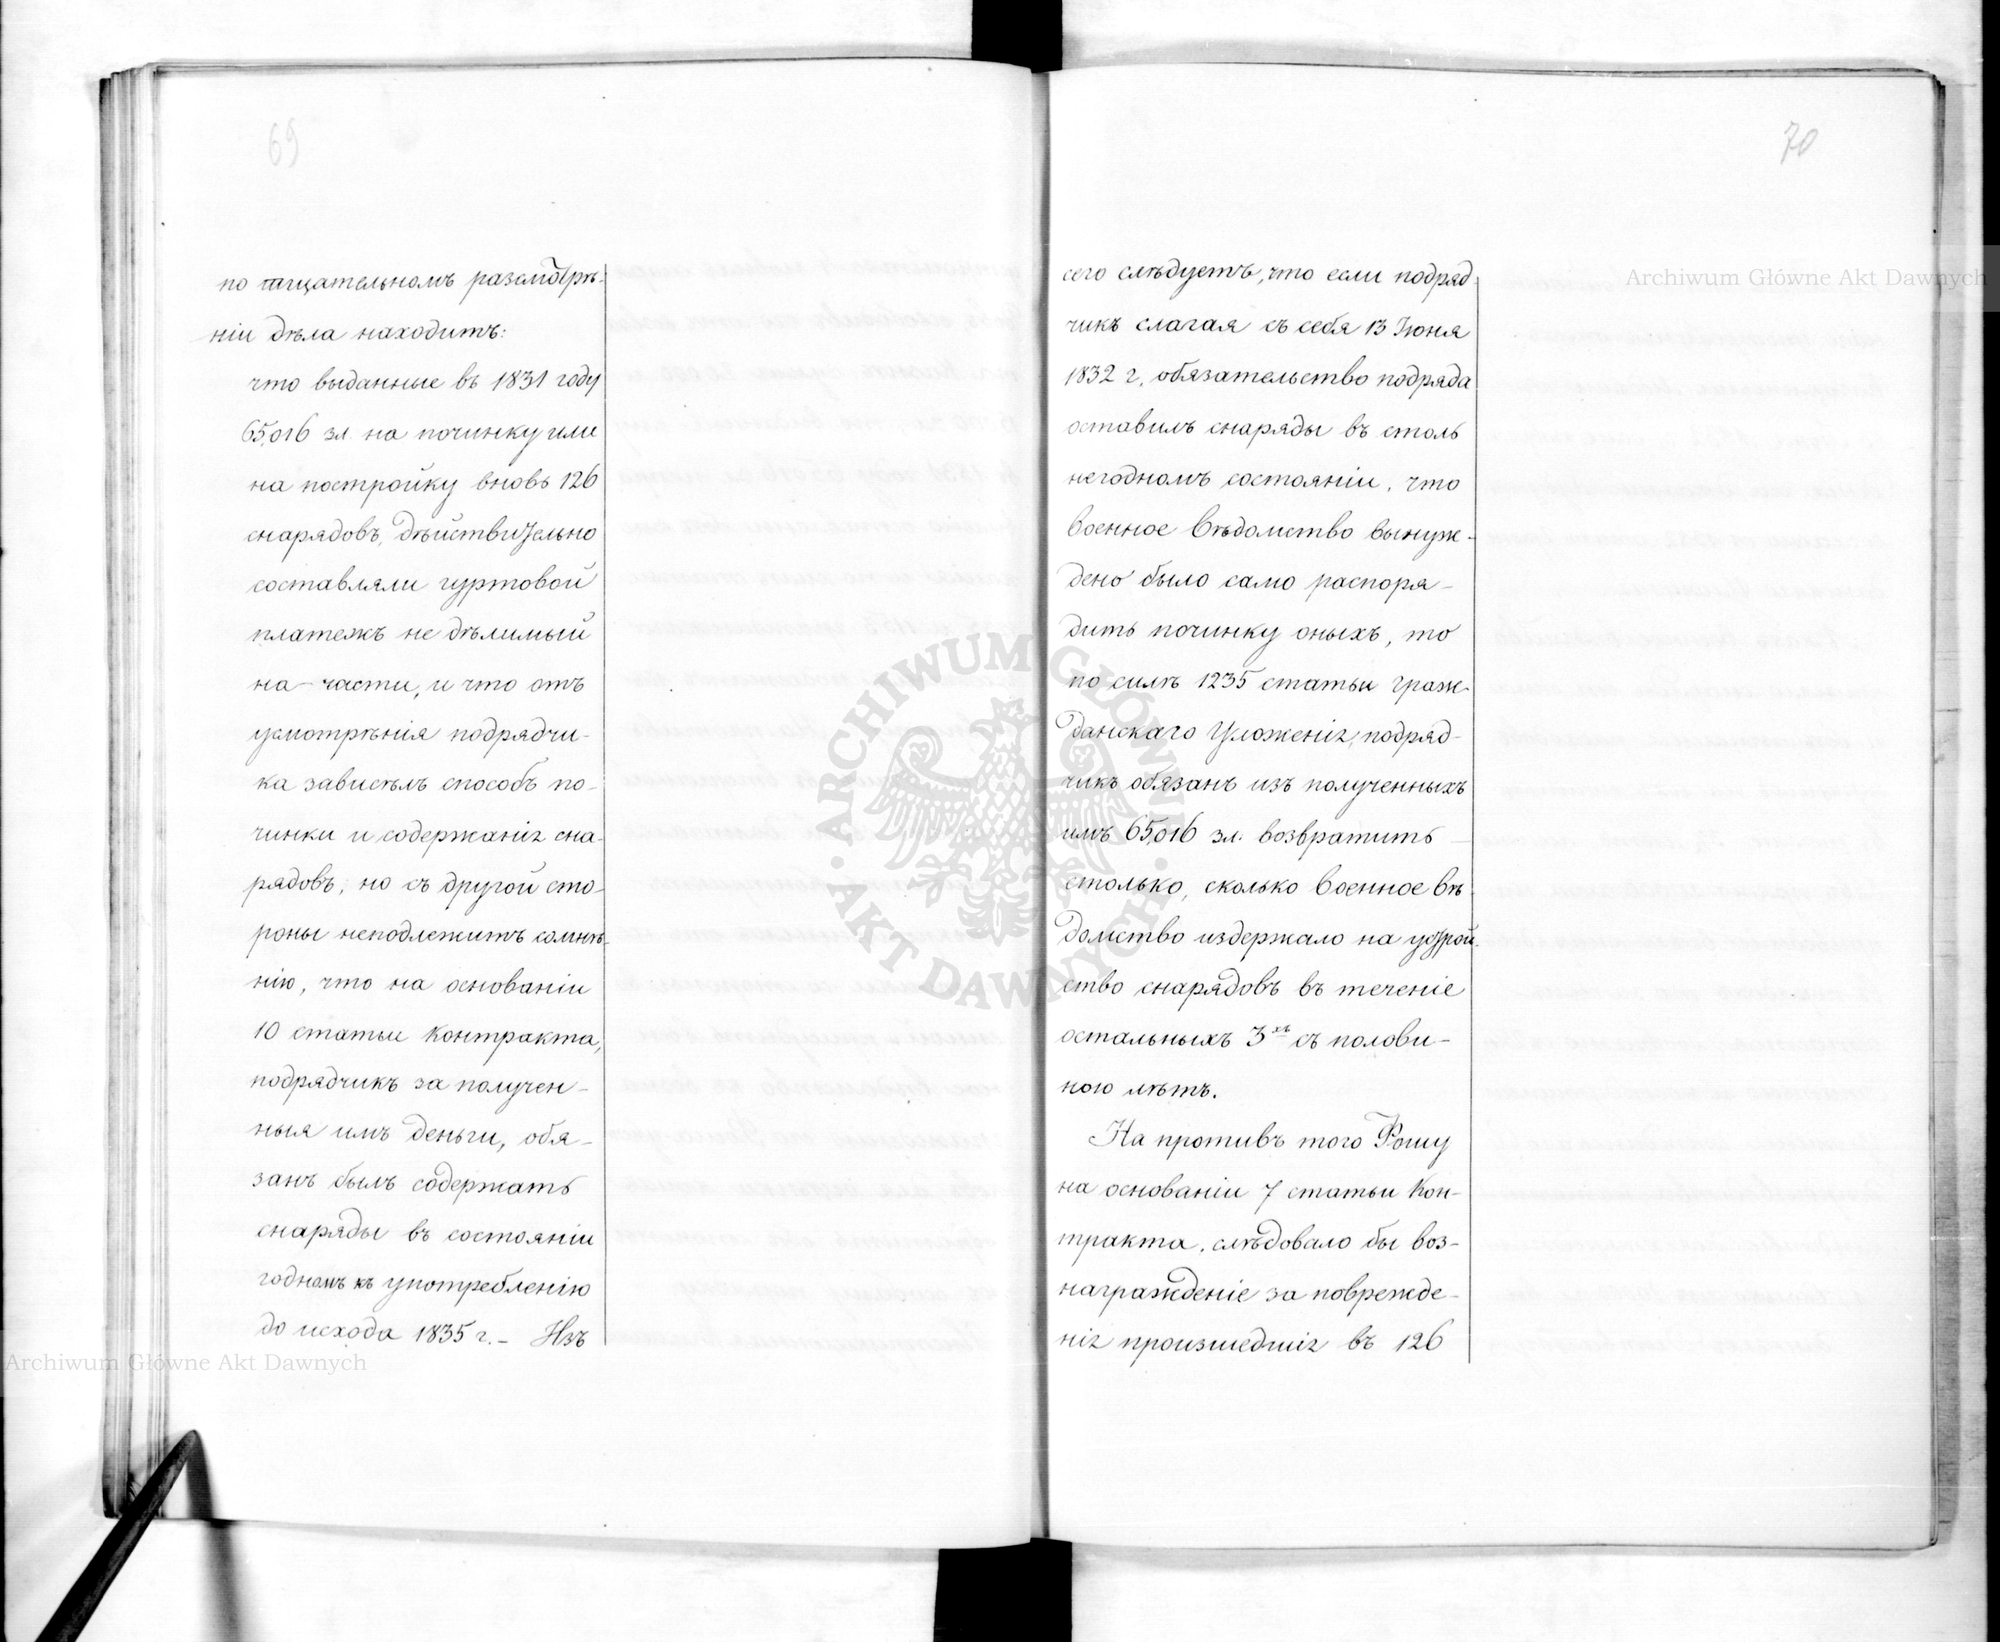 69
по тщательномъ разсмотрѣ-
ніи дѣла находитъ:
что выданные въ 1831 году
65,016 зл. на починку или
на постройку вновь 126
снарядовъ, дѣйствительно
составляли гуртовой
платежъ не дѣлимый
на части, и что отъ
усмотрѣнія подрядчи-
ка зависѣлъ способъ по-
чинки и содержанія сна-
рядовъ, но съ другой сто-
роны неподлежитъ сомнѣ-
нію, что на основаніи
10 статьи контракта,
подрядчикъ за получен-
ныя имъ деньги, обя-
занъ былъ содержать
снаряды въ состояніи
годномъ къ употребленію
до исхода 1835 г. - Изъ
70
сего слѣдуетъ, что если подряд-
чикъ слагая съ себя 13 Іюня
1832 г. обязательство подряда
оставилъ снаряды въ столь
негодномъ состояніи, что
военное вѣдомство вынуж-
дено было само распоря-
дить починку оныхъ, то
по силѣ 1235 статьи Граж-
данскаго Уложенія, подряд-
чикъ обязанъ изъ полученныхъ
имъ 65,016 зл. возвратить
столько, сколько военное вѣ-
домство издержало на устрой-
ство снарядовъ въ теченіе
остальныхъ 3хъ съ полови-
ною лѣтъ.
На противъ того Рошу
на основаніи 7 статьи Кон-
тракта, слѣдовало бы воз-
награжденіе за поврежде-
нія произшедшія въ 126
Archiwum Główne Akt Dawnych
Archiwum Główne Akt Dawnych
ARCHIWUM GŁÓWNE · AKT DAWNYCH ·